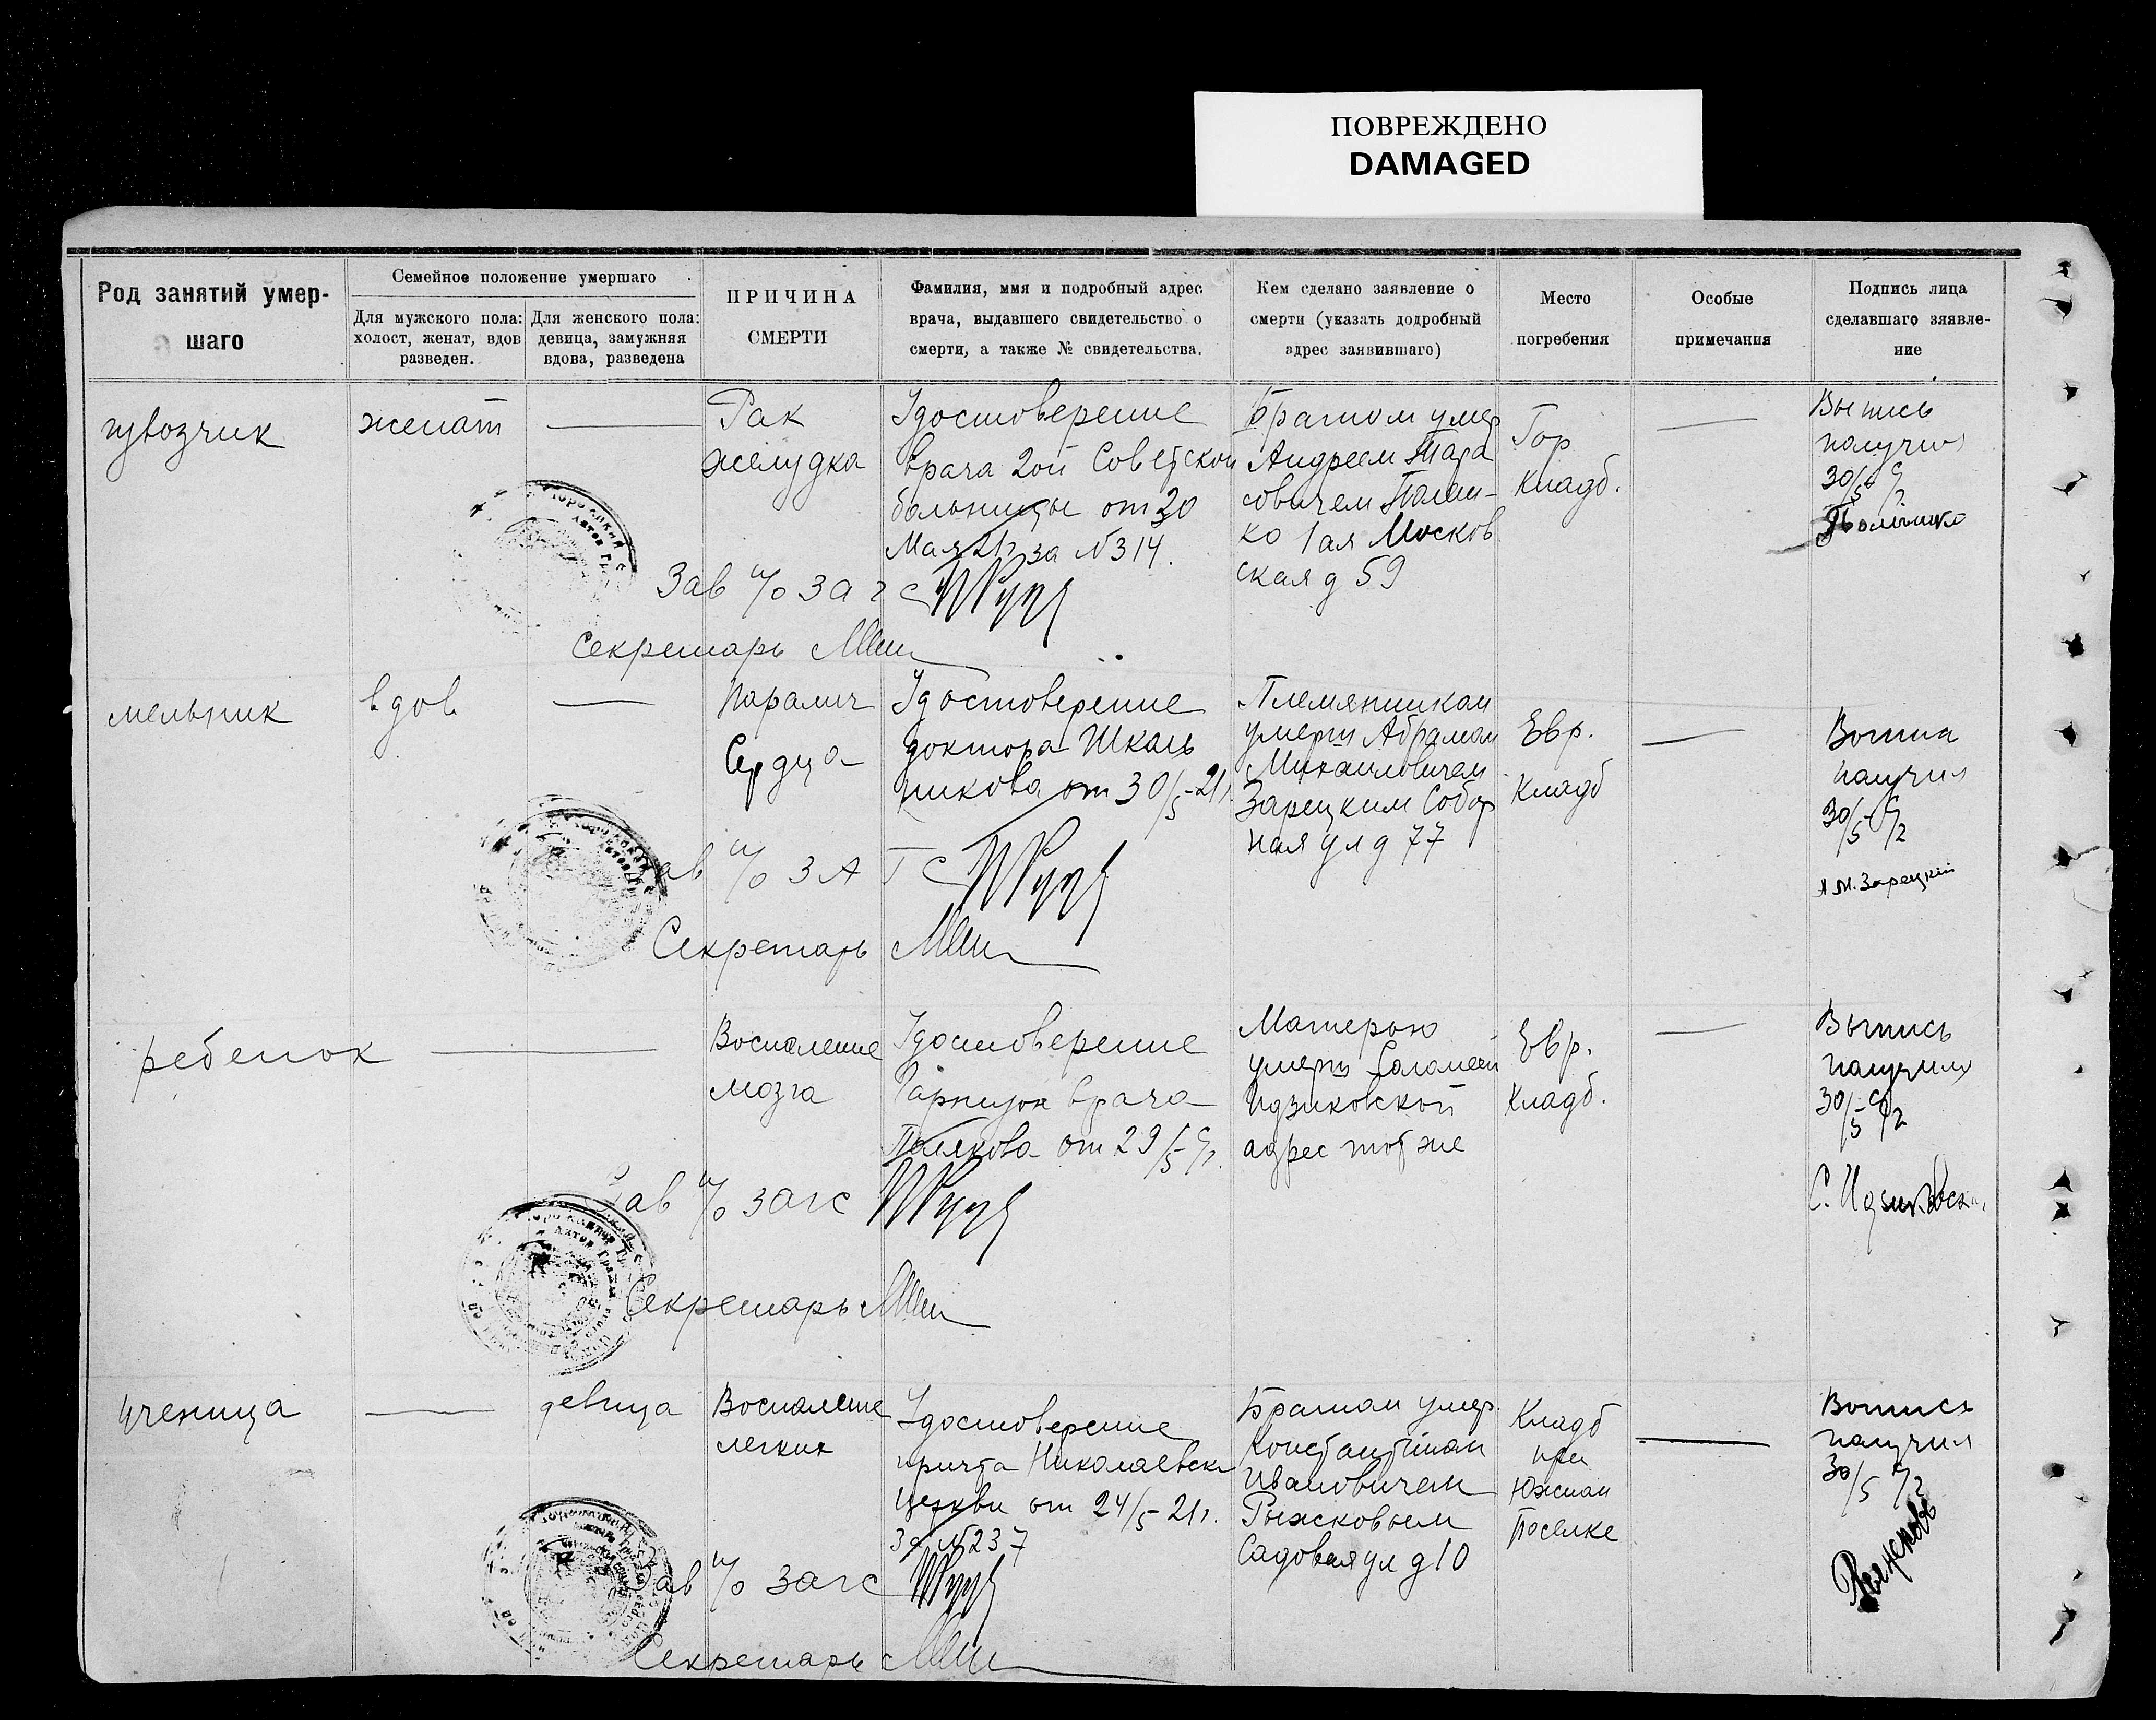 ПОВРЕЖДЕНО
DAMAGED
Род занятий умер-
шаго
Семейное положение умершаго
Для мужского пола:
холост, женат, вдов
разведен.
Для женского пола:
девица, замужняя
вдова, разведена
ПРИЧИНА
СМЕРТИ
Фамилия, ммя и подробный адрес
врача, выдавшего свидетельство о
смерти, а также № свидетельства.
Кем сделано заявление о
смерти (указать додробный
адрес заявившаго)
Место
погребения
Особые
примечания
Подпись лица
сделавшаго зяявле-
ние
женат
Рак
желудка
Удостоверение
врача 2ой Советской
больницы от 30
Мая 21г за №314.
Братом умер
Андреем Тара
совичем
ко 1ая Москов
ская д 59
Гор
кладб.
Выпись
получил
30/5
Зав п/о загс
Секретарь
мельник
вдов
Паралич
Сердца
Удостоверение
доктора Школь
никова от 30/5-21г
Племянником
умерш Абрамом
Михайловичем
Зарецким Собор
ная ул д 77
Евр.
Кладб
Выписи
получил
30/5
А М. Зарецкий
Зав п/о ЗАГС
Секретарь
ребенок
Воспаление
мозга
Удостоверение
Гарнизон врача
Полякова от 29/5
Матерью
умерш Саломеей
Идзиковской
адрес тот же
Евр.
Кладб.
Выпись
получила
30/5
С. Идзиковск
Зав п/о загс
Секретарь
ученица
девица
Воспаление
легких
Удостоверение
причта Николаевск
Церкви от 24/5-21г.
За №237
Братом умер.
Константином
Ивановичем
Рыжковым
Садовая ул д 10
Кладб
при
Южном
Поселке
Выпись
получил
30/5
Рыжков
Зав п/о загс
Секретарь